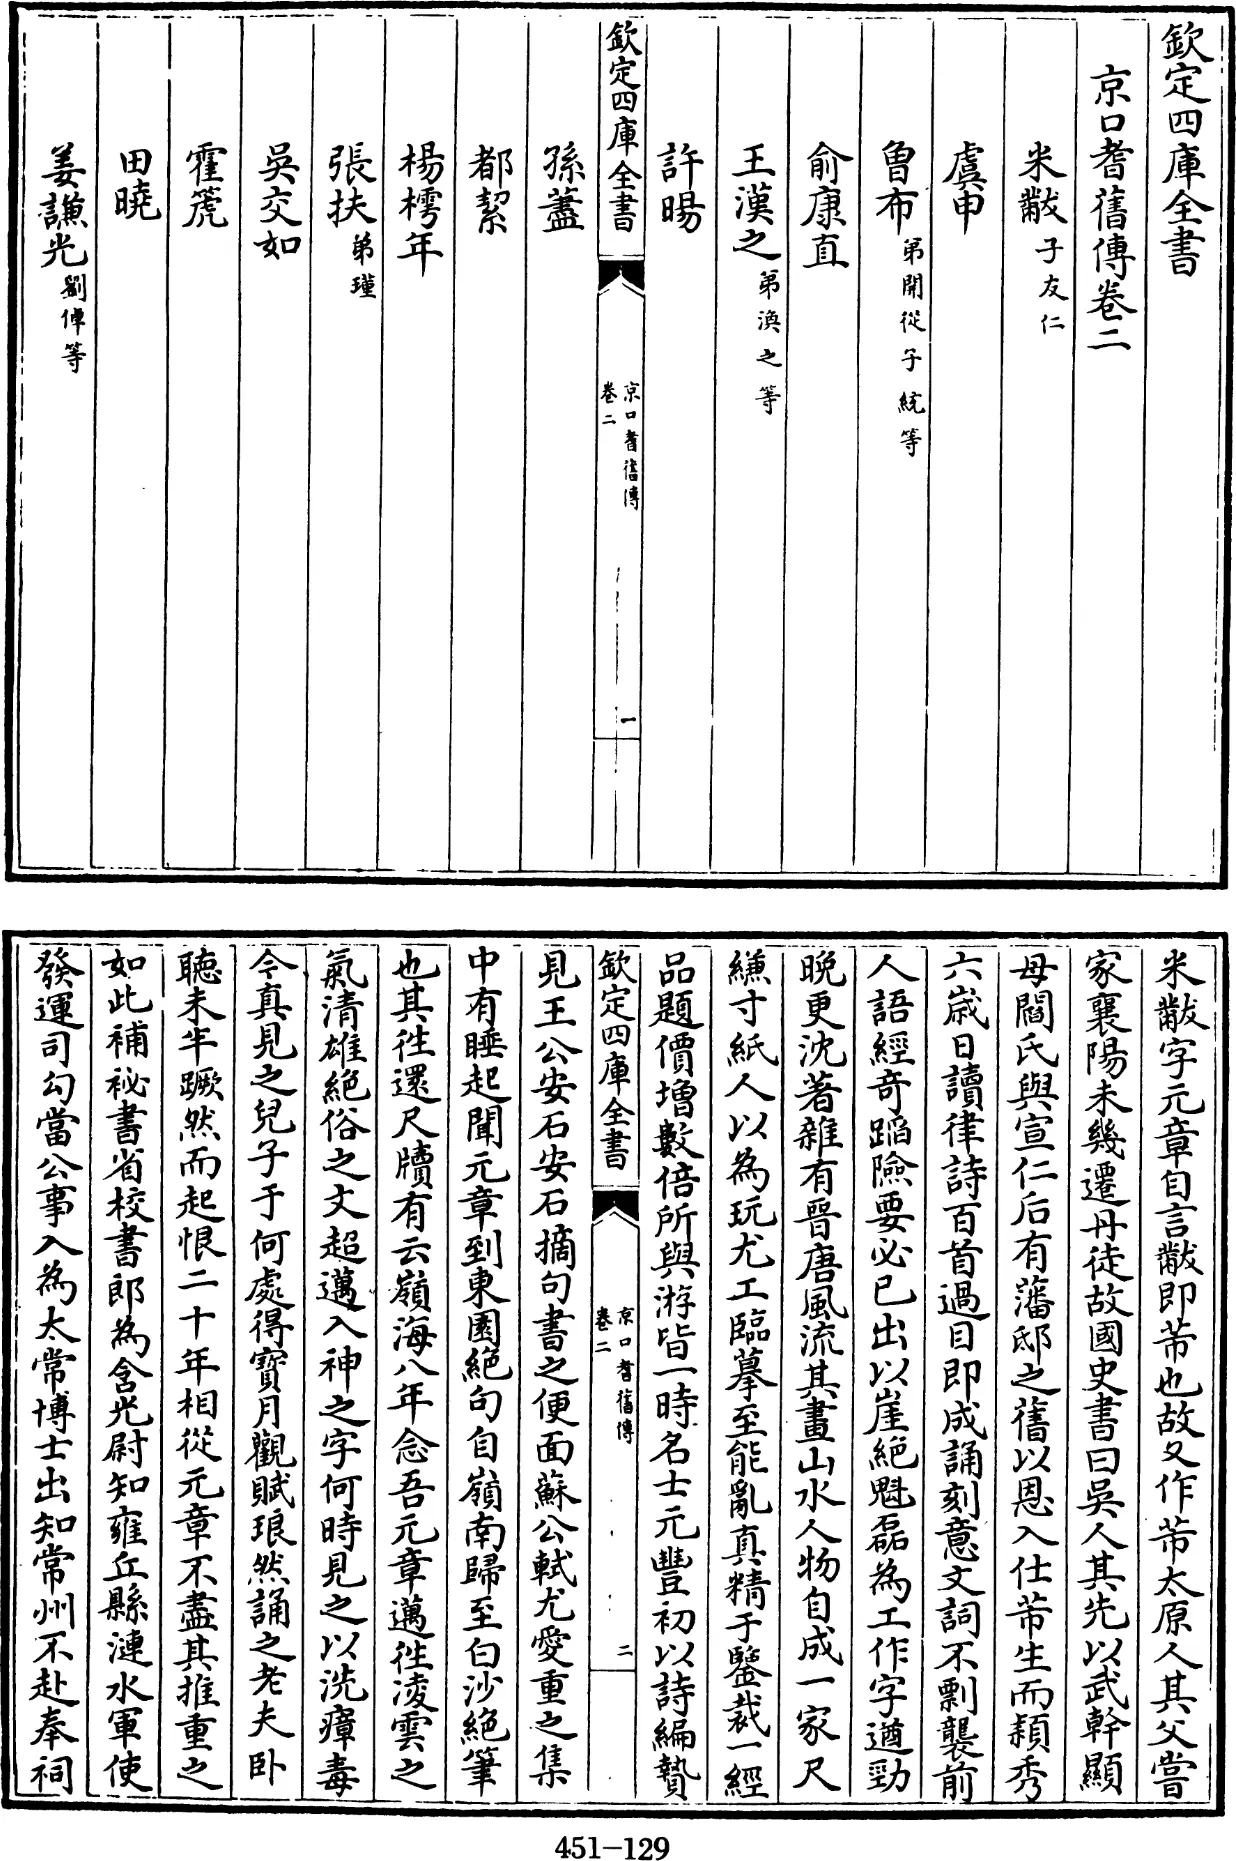 欽定四庫全書
京口耆舊傳卷二
米黻子友仁
虞申
曾布弟開從子統等
俞康直
王漢之弟渙之等
許暘
欽定四庫全書
京口耆舊傳
卷二
一
孫藎
都絜
楊樗年
張扶弟瑾
吳交如
霍箎
田曉
姜謙光劉倬等
米黻字元章自言黻即芾也故又作芾太原人其父嘗
家襄陽未幾遷丹徒故國史書曰吳人其先以武幹顯
母閻氏與宣仁后有藩邸之舊以恩入仕芾生而穎秀
六歲日讀律詩百首過目即成誦刻意文詞不剽襲前
人語經奇蹈險要必已出以崖絕魁磊為工作字遒勁
晚更沈著雜有晉唐風流其畫山水人物自成一家尺
縑寸紙人以為玩尤工臨摹至能亂真精于鑒裁一經
品題價增數倍所與游皆一時名士元豐初以詩編贄
欽定四庫全書
京口耆舊傳
卷二
二
見王公安石安石摘句書之便面蘇公軾尤愛重之集
中有睡起聞元章到東園絕句自嶺南歸至白沙絕筆
也其徃還尺牘有云嶺海八年念吾元章邁徃凌雲之
氣清雄絕俗之文超邁入神之字何時見之以洗瘴毒
今真見之兒子于何處得寶月觀賦琅然誦之老夫卧
聽未半蹶然而起恨二十年相從元章不盡其推重之
如此補秘書省校書郎為含光尉知雍丘縣漣水軍使
發運司勾當公事入為太常博士出知常州不赴奉祠
451-129